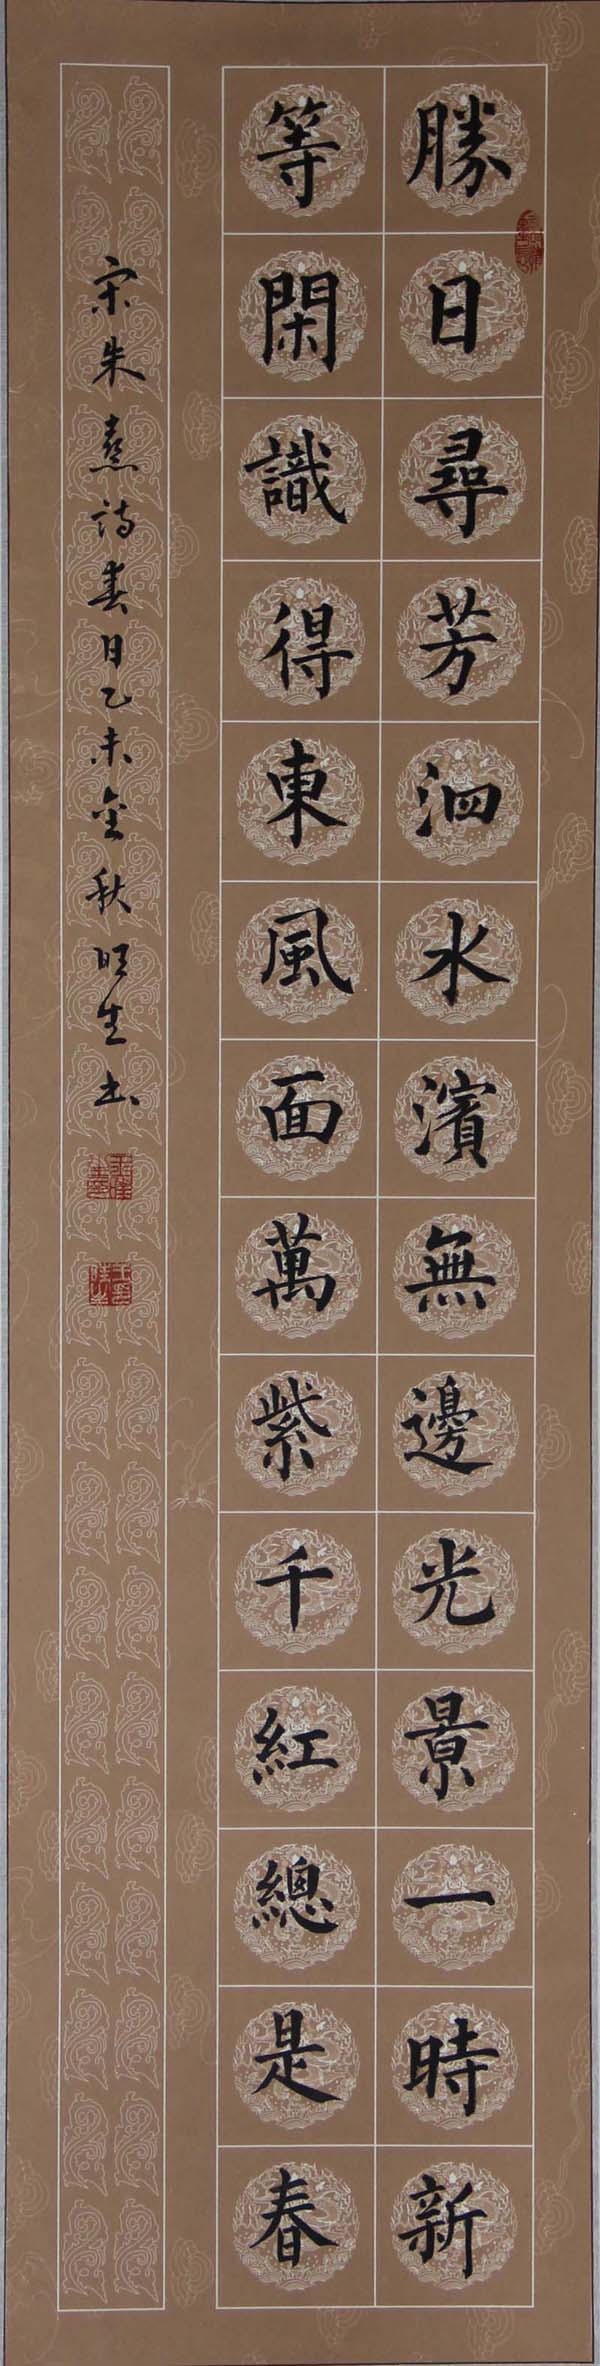 勝日尋芳泗水濱無邊光景一時新
等閑識得東風面萬紫千紅總是春
宋朱熹詩春日乙未金秋旺生书